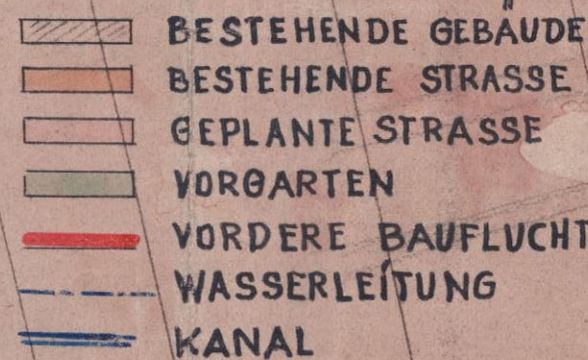 BESTEHENDE GEBÄUDE
BESTEHENDE STRASSE
GEPLANTE STRASSE
VORGARTEN
VORDERE BAUFLUCHT
WASSERLEITUNG
KANAL